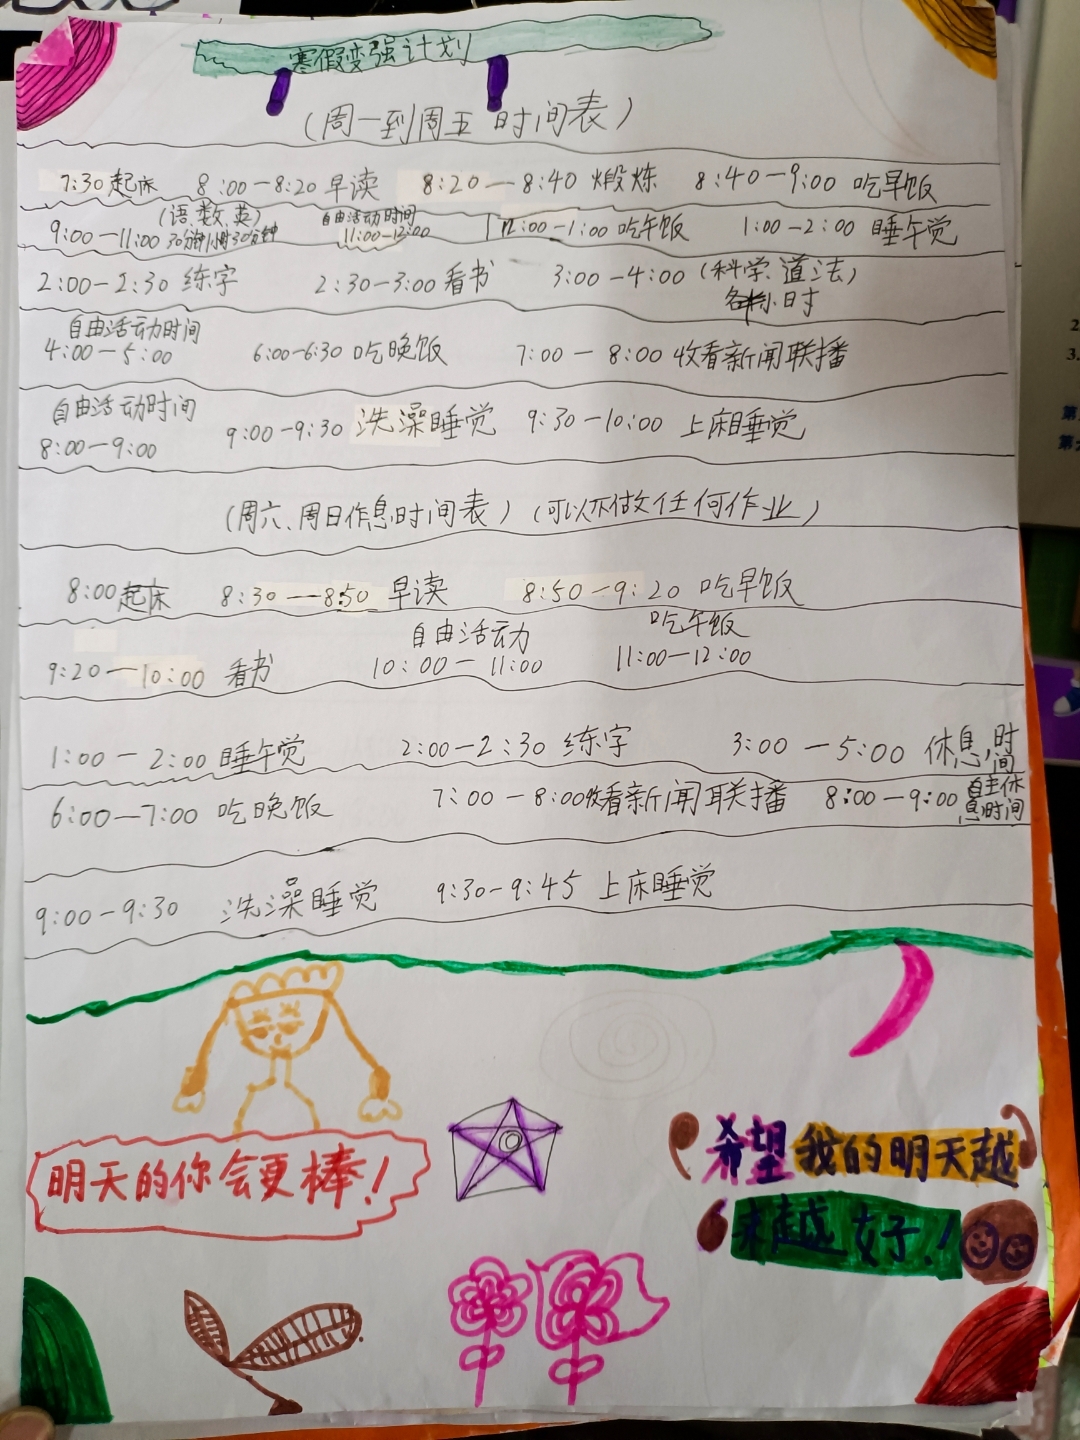 寒假变强计划
(周一到周五 时间表)
7:30 起床 8:00—8:20 早读 8:20—8:40 煅炼 8:40—9:00 吃早饭
(语、数、英) 自由活动时间
9:00—11:00 30分钟 30分钟 11:00—12:00 12:00—1:00 吃午饭 1:00—2:00 睡午觉
2:00—2:30 练字 2:30—3:00 看书 3:00—4:00 (科学、道法)
小时
自由活动时间
4:00—5:00 6:00—6:30 吃晚饭 7:00—8:00 收看新闻联播
自由活动时间
8:00—9:00 9:00—9:30 洗澡睡觉 9:30—10:00 上床睡觉
(周六、周日作息时间表) (可以不做任何作业)
8:00 起床 8:30—8:50 早读 8:50—9:20 吃早饭
自由活动 吃午饭
9:20—10:00 看书 10:00—11:00 11:00—12:00
1:00—2:00 睡午觉 2:00—2:30 练字 3:00—5:00 休息,时间
6:00—7:00 吃晚饭 7:00—8:00 收看新闻联播 8:00—9:00 自主休息时间
9:00—9:30 洗澡睡觉 9:30—9:45 上床睡觉
明天的你会更棒!
希望我的明天越
来越好!
2
3.
第
第